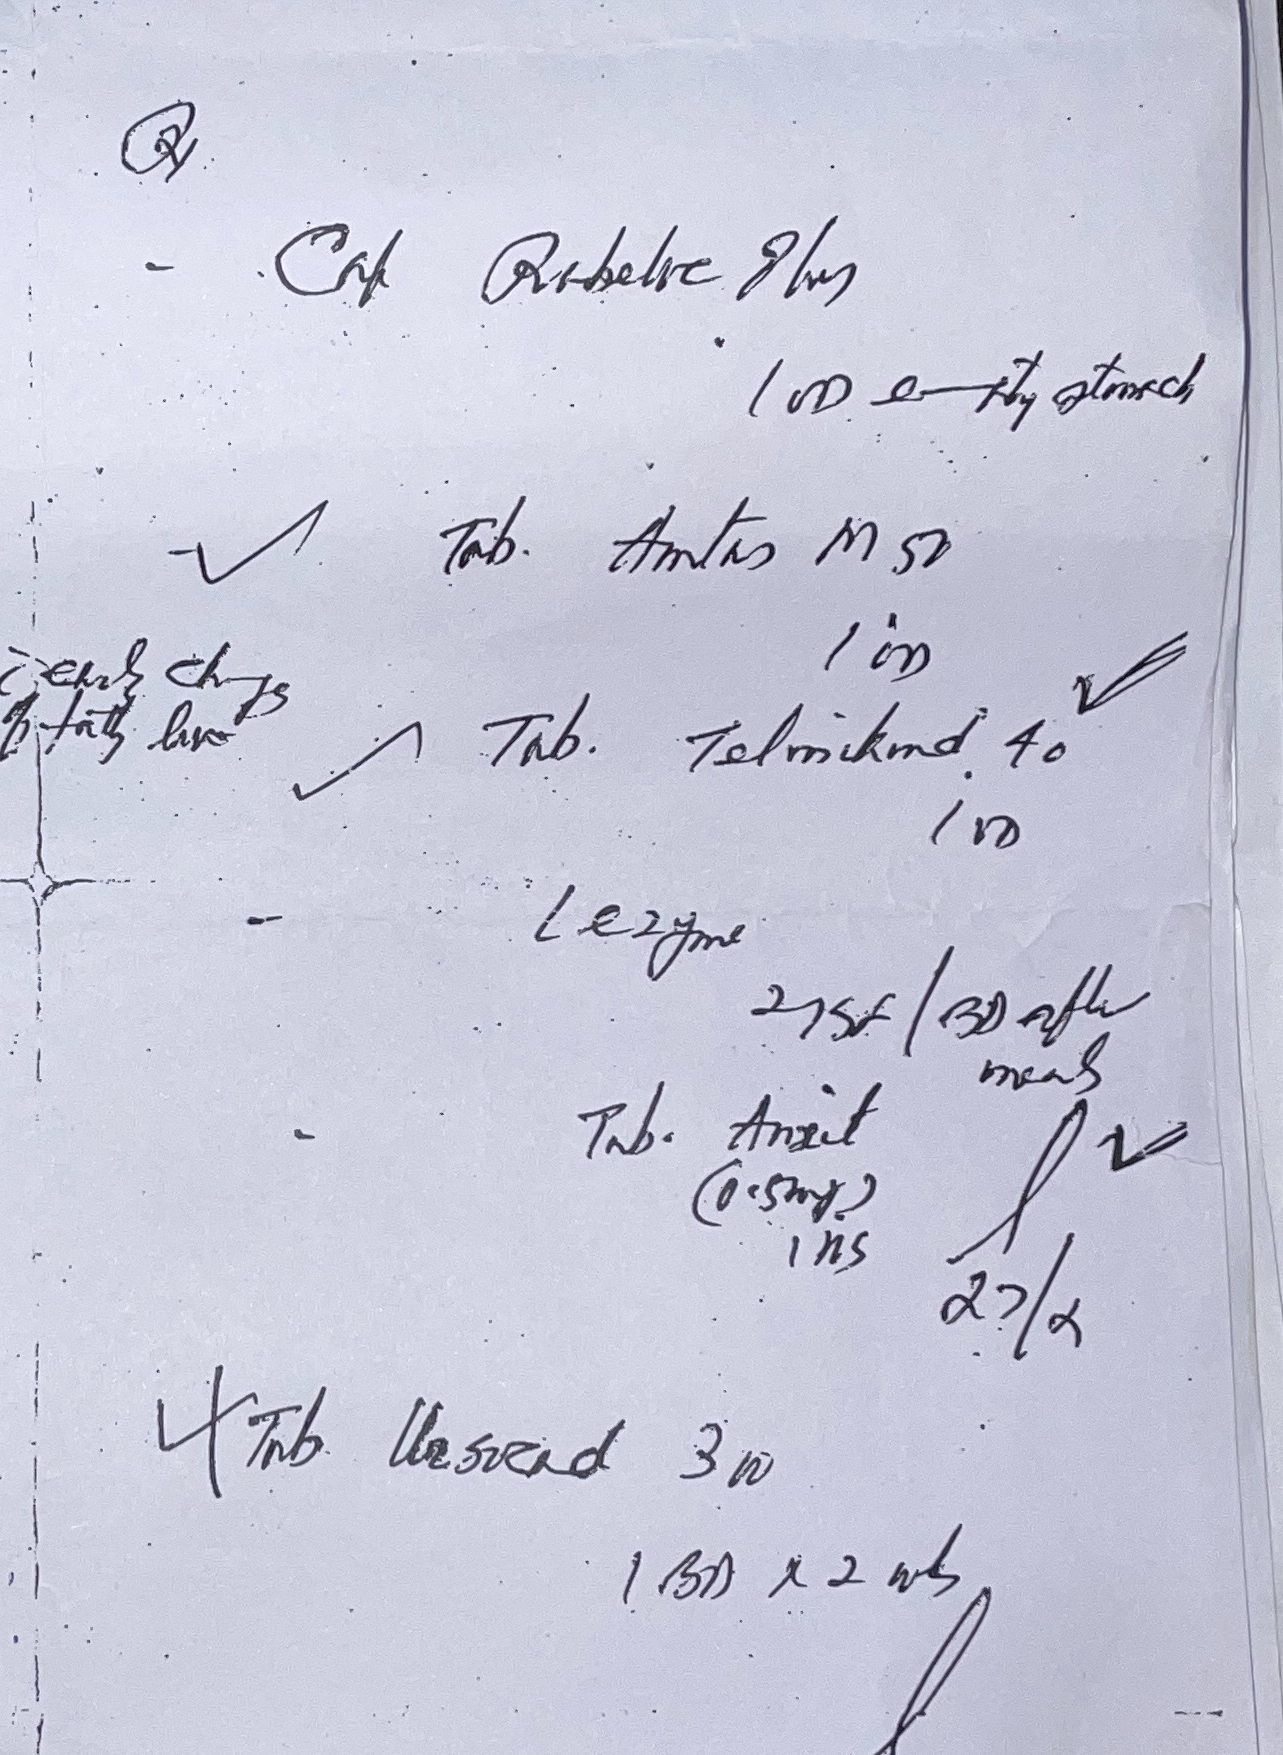 Rx
- Cap Rabelve Plus
1 OD empty stomach
Tab. Amtas M 50
1 OD
c early changes
of fatty liver
Tab. Telmikind 40
1 OD
- Lezyme
2 TSF / BD after
meals
- Tab. Anxit
(0.5mg)
1 HS
27/2
Tab. Ursocad 300
1 BD x 2 wks